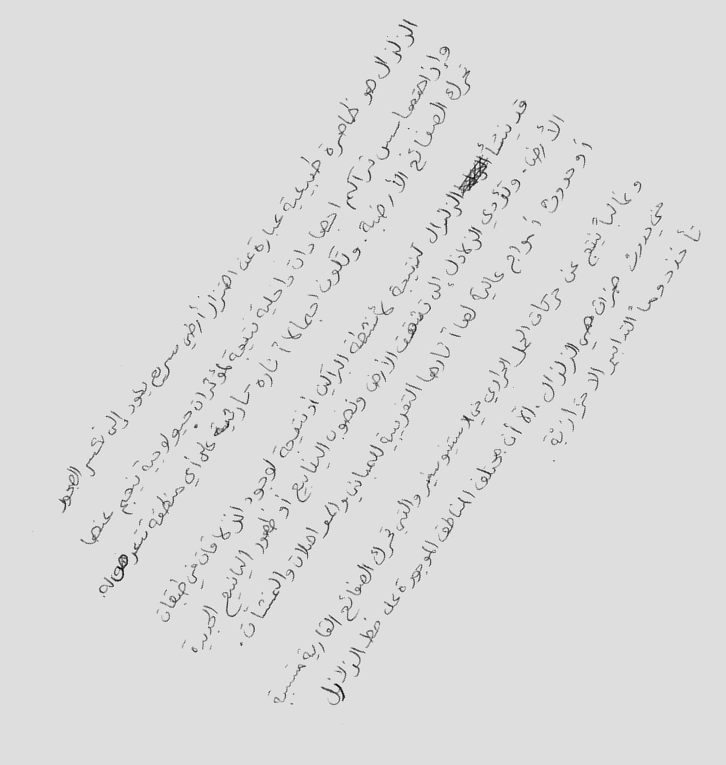 الزلزال هو ظاهرة طبيعية عبارة عن اهتزاز أرضي سريع يعود إلى تكسر الصخور
وإزاحتها بسبب تراكم اجهادات داخلية نتيجة لمؤثرات جيولوجية ينجم عنها
تحرك الصفائح الأرضية. وتكون اجمالا آثاره على أي منطقة تتعرض له.
قد ينشأ الزلزال كنتيجة لأنشطة البراكين أو نتيجة لوجود انزلاقات في طبقات
الأرض. وتؤدي الزلازل إلى تشقق الأرض ونضوب الينابيع أو ظهور الينابيع الجديدة
أو حدوث أمواج عالية لها آثارها التخريبية للمباني والمواصلات والمنشآت.
وغالبا ينتج عن حركات الحمل الحراري في والتي تحرك الصفائح القارية متسببة
في حدوث هزات هي الزلزال. الا أن مختلف المناطق الموجودة على خط الزلازل
تأخذ دوما التدابير الاحترازية.